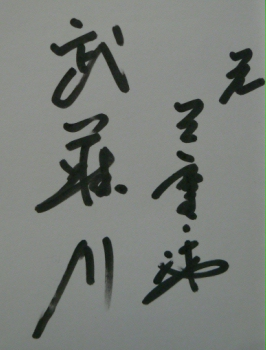 元 三重ノ海
武蔵川